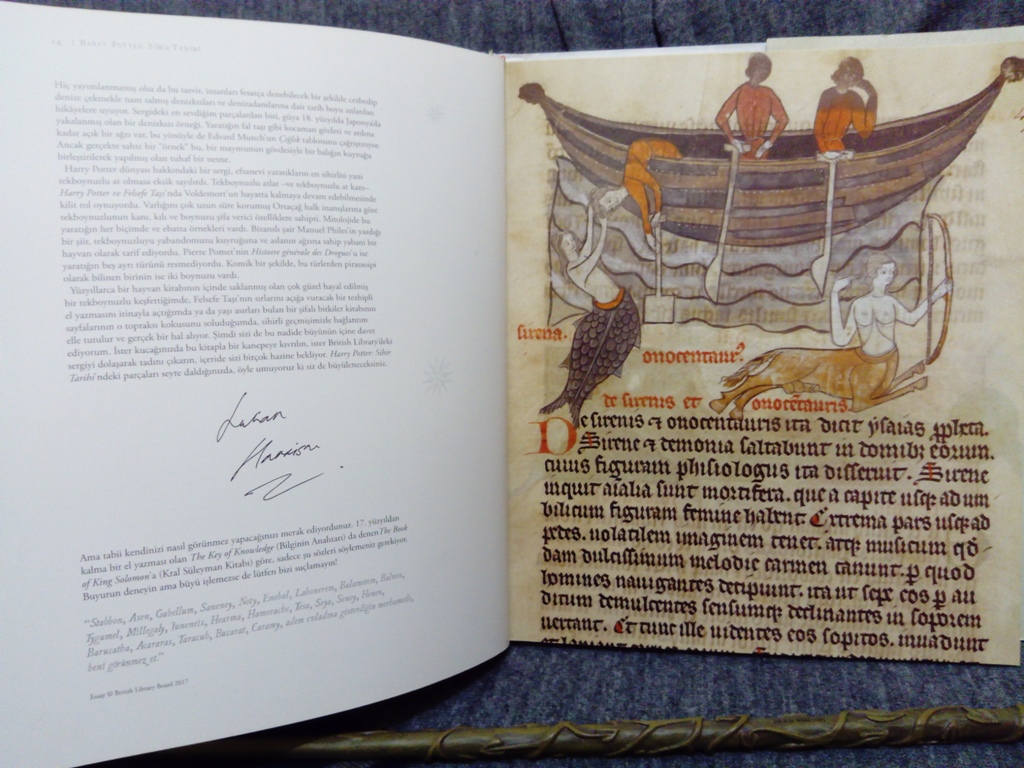 14 | HARRY POTTER: SİHİR TARİHİ
Hiç yayımlanmamış olsa da bu tasvir, insanları fesatça denebilecek bir şekilde cezbedip
denize çekmekle nam salmış denizkızları ve denizadamlarına dair tarih boyu anlatılan
hikâyelere uyuyor. Sergideki en sevdiğim parçalardan biri, güya 18. yüzyılda Japonya'da
yakalanmış olan bir denizkızı örneği. Yaratığın fal taşı gibi kocaman gözleri ve ardına
kadar açık bir ağzı var, bu yönüyle de Edvard Munch'un Çığlık tablosunu çağrıştırıyor.
Ancak gerçekte sahte bir "örnek" bu, bir maymunun gövdesiyle bir balığın kuyruğu
birleştirilerek yapılmış olan tuhaf bir nesne.
Harry Potter dünyası hakkındaki bir sergi, efsanevi yaratıkların en sihirlisi yani
tekboynuzlu at olmasa eksik sayılırdı. Tekboynuzlu atlar –ve tekboynuzlu at kanı–
Harry Potter ve Felsefe Taşı'nda Voldemort'un hayatta kalmaya devam edebilmesinde
kilit rol oynuyordu. Varlığını çok uzun süre korumuş Ortaçağ halk inanışlarına göre
tekboynuzlunun kanı, kılı ve boynuzu şifa verici özelliklere sahipti. Mitolojide bu
yaratığın her biçimde ve ebatta örnekleri vardı. Bizanslı şair Manuel Philes'in yazdığı
bir şiir, tekboynuzluyu yabandomuzu kuyruğuna ve aslanın ağzına sahip yabani bir
hayvan olarak tarif ediyordu. Pierre Pomet'nin Histoire générale des Drogues'u ise
yaratığın beş ayrı türünü resmediyordu. Komik bir şekilde, bu türlerden pirassoipi
olarak bilinen birinin ise iki boynuzu vardı.
Yüzyıllarca bir hayvan kitabının içinde saklanmış olan çok güzel hayal edilmiş
bir tekboynuzlu keşfettiğimde, Felsefe Taşı'nın sırlarını açığa vuracak bir tezhipli
el yazmasını itinayla açtığımda ya da yaşı asırları bulan bir şifalı bitkiler kitabının
sayfalarının o topraksı kokusunu soluduğumda, sihirli geçmişimizle bağlantım
elle tutulur ve gerçek bir hal alıyor. Şimdi sizi de bu nadide büyünün içine davet
ediyorum. İster kucağınızda bu kitapla bir kanepeye kıvrılın, ister British Library'deki
sergiyi dolaşarak tadını çıkarın, içeride sizi birçok hazine bekliyor. Harry Potter: Sihir
Tarihi'ndeki parçaları seyre daldığınızda, öyle umuyoruz ki siz de büyüleneceksiniz.
Julian
Harrison
Ama tabii kendinizi nasıl görünmez yapacağınızı merak ediyordunuz. 17. yüzyıldan
kalma bir el yazması olan The Key of Knowledge (Bilginin Anahtarı) da denen The Book
of King Solomon'a (Kral Süleyman Kitabı) göre, sadece şu sözleri söylemeniz gerekiyor.
Buyurun deneyin ama büyü işlemezse de lütfen bizi suçlamayın!
"Stabbon, Asen, Gabellum, Saneney, Noty, Enobal, Labonerem, Balametem, Balnon,
Tygumel, Millegaly, Juneneis, Hearma, Hamorache, Yesa, Seya, Senoy, Henen,
Barucatha, Acararas, Taracub, Bucarat, Caramy, adem evladına gösterdiğin merhametle,
beni görünmez et."
Essay © British Library Board 2017
sirena.
onocentaur9
de sirenis et onocētauris
De sirenis & onocentauris ita dicit ysaias ppheta.
Sirene & demonia saltabunt in domibȝ eorum.
cuius figuram phisiologus ita disseruit. Sirene
inquit aīalia sunt mortifera. que a capite usqȝ ad um
bilicum figuram femine habent Extrema pars usqȝ ad
pedes. uolatilem imaginem tenet. atqȝ musicum qd̄
dam dulcissimum melodie carmen canunt. ꝑ quod
homines nauigantes decipiunt. ita ut sepe eos ꝑ au
ditum demulcentes sensumqȝ declinantes in soporem
uertant. Et tunc ille uidentes eos sopitos. inuadunt